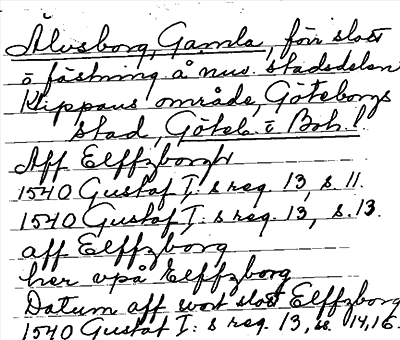 Älvsborg, Gamla, förr slott
o fästning å nuv. stadsdelen
Klippans område, Göteborgs
stad, Göteb. o Boh. l.
Aff Elffzborgh
1540 Gustaf I:s reg. 13, s. 11.
1540 Gustaf I:s reg. 13, s. 13.
aff Elffzborg
her vpå Elffzborg
Datum aff wort slott Elffzborg
1540 Gustaf I:s reg. 13, ss. 14, 16.